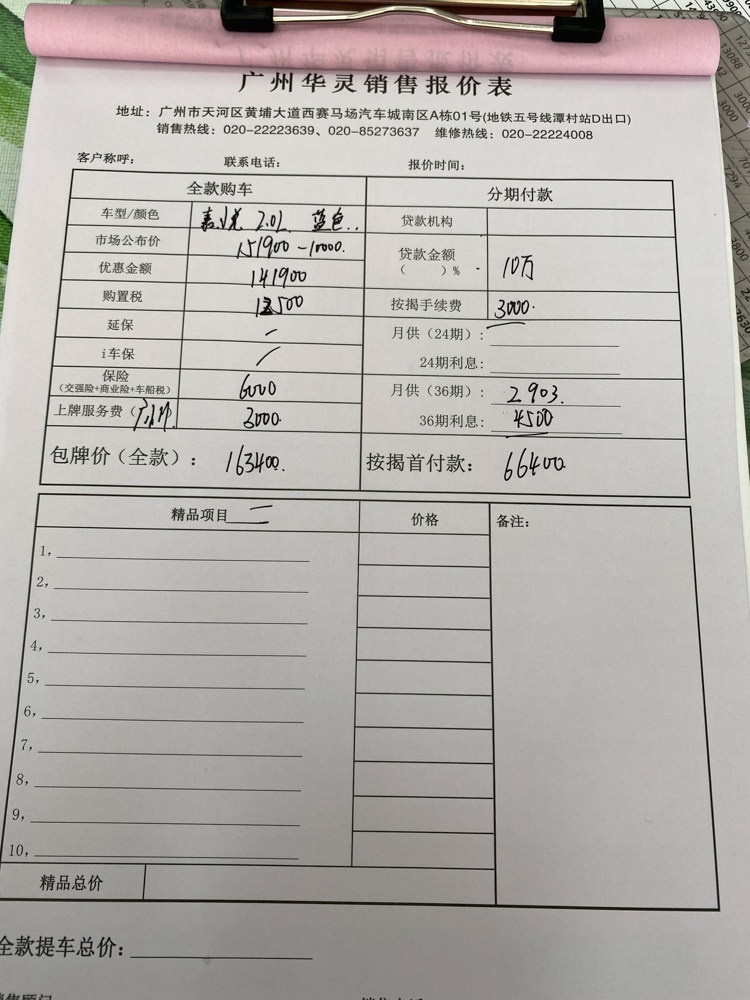 广州华灵销售报价表
地址：广州市天河区黄埔大道西赛马场汽车城南区A栋01号(地铁五号线潭村站D出口)
销售热线：020-22223639、020-85273637 维修热线：020-22224008
客户称呼： 联系电话： 报价时间：
全款购车 分期付款
车型/颜色 2.0L 蓝色.. 贷款机构
市场公布价 151900-10000. 贷款金额
（ ）% 10万
优惠金额 141900
购置税 12500 按揭手续费 3000.
延保 - 月供（24期）：
i车保 24期利息:
保险
（交强险+商业险+车船税） 6000 月供（36期）： 2903.
上牌服务费（广州牌 3000. 36期利息: 4500
包牌价（全款）： 163400. 按揭首付款： 66400.
精品项目 价格 备注：
1,
2,
3,
4,
5,
6,
7,
8,
9,
10,
精品总价
全款提车总价：